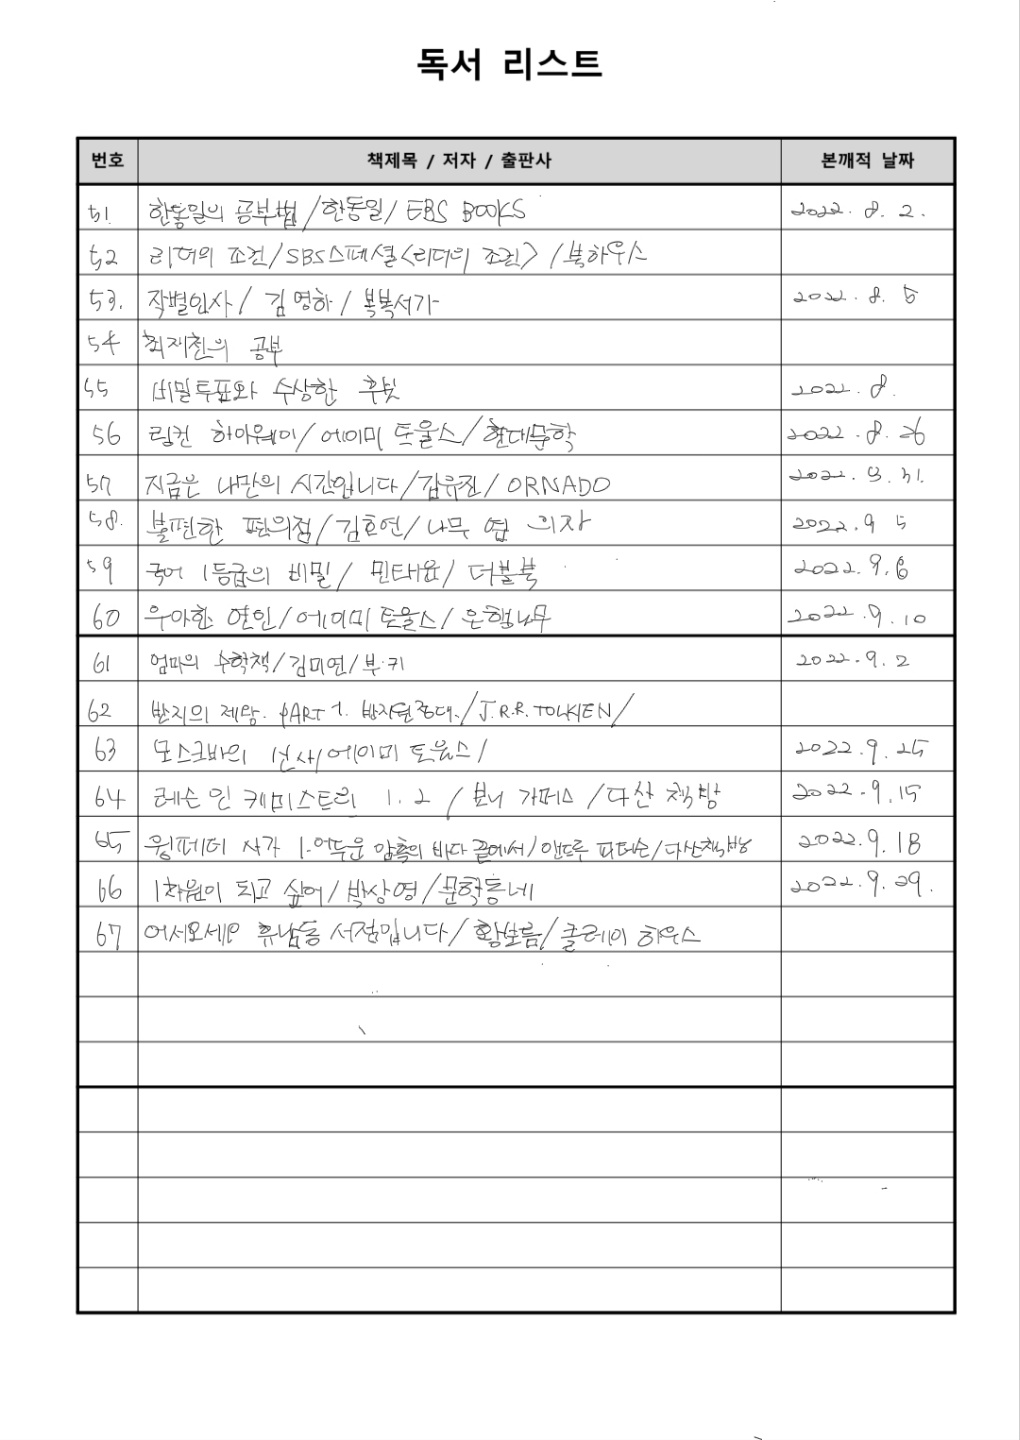 독서 리스트
번호 책제목 / 저자 / 출판사 본깨적 날짜
51 한동일의 공부법 / 한동일 / EBS BOOKS 2022. 8. 2.
52 리더의 조건 / SBS스페셜 <리더의 조건> / 북하우스
53. 작별인사 / 김영하 / 복복서가 2022. 8. 5
54 최재천의 공부
55 비밀투표와 수상한 후보 2022. 8.
56 링컨 하이웨이 / 에이미 토울스 / 현대문학 2022. 8. 26
57 지금은 나만의 시간입니다 / 김유진 / ORNADO 2022. 31.
58. 불편한 편의점 / 김호연 / 나무 옆 의자 2022. 9 5
59 국어 1등급의 비밀 / 민태윤 / 더블북 2022. 9. 6
60 우아한 연인 / 에이미 토울스 / 은행나무 2022. 9. 10
61 엄마의 수학책 / 김미연 / 부·키 2022. 9. 2
62 반지의 제왕. PART 1. 반지원정대. / J.R.R. TOLKIEN /
63 모스크바의 신사 / 에이미 토울스 / 2022. 9. 25
64 레슨 인 케미스트리 1. 2 / 보니 가머스 / 다산 책방 2022. 9. 15
65 윙페더 사가 1. 어두운 암흑의 바다 끝에서 / 앤드루 피터슨 / 다산책방 2022. 9. 18
66 1차원이 되고 싶어 / 박상영 / 문학동네 2022. 9. 29.
67 어서오세요 휴남동 서점입니다 / 황보름 / 클레이 하우스